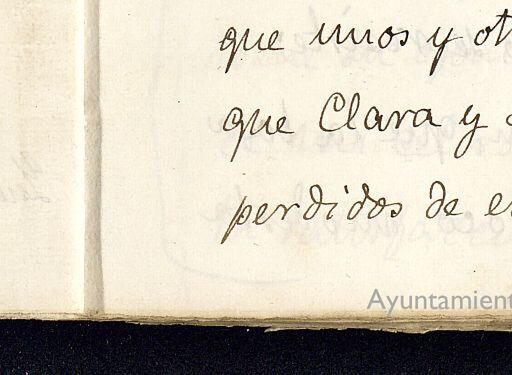 que unos y ot
que Clara y
perdidos de
Ayuntamient